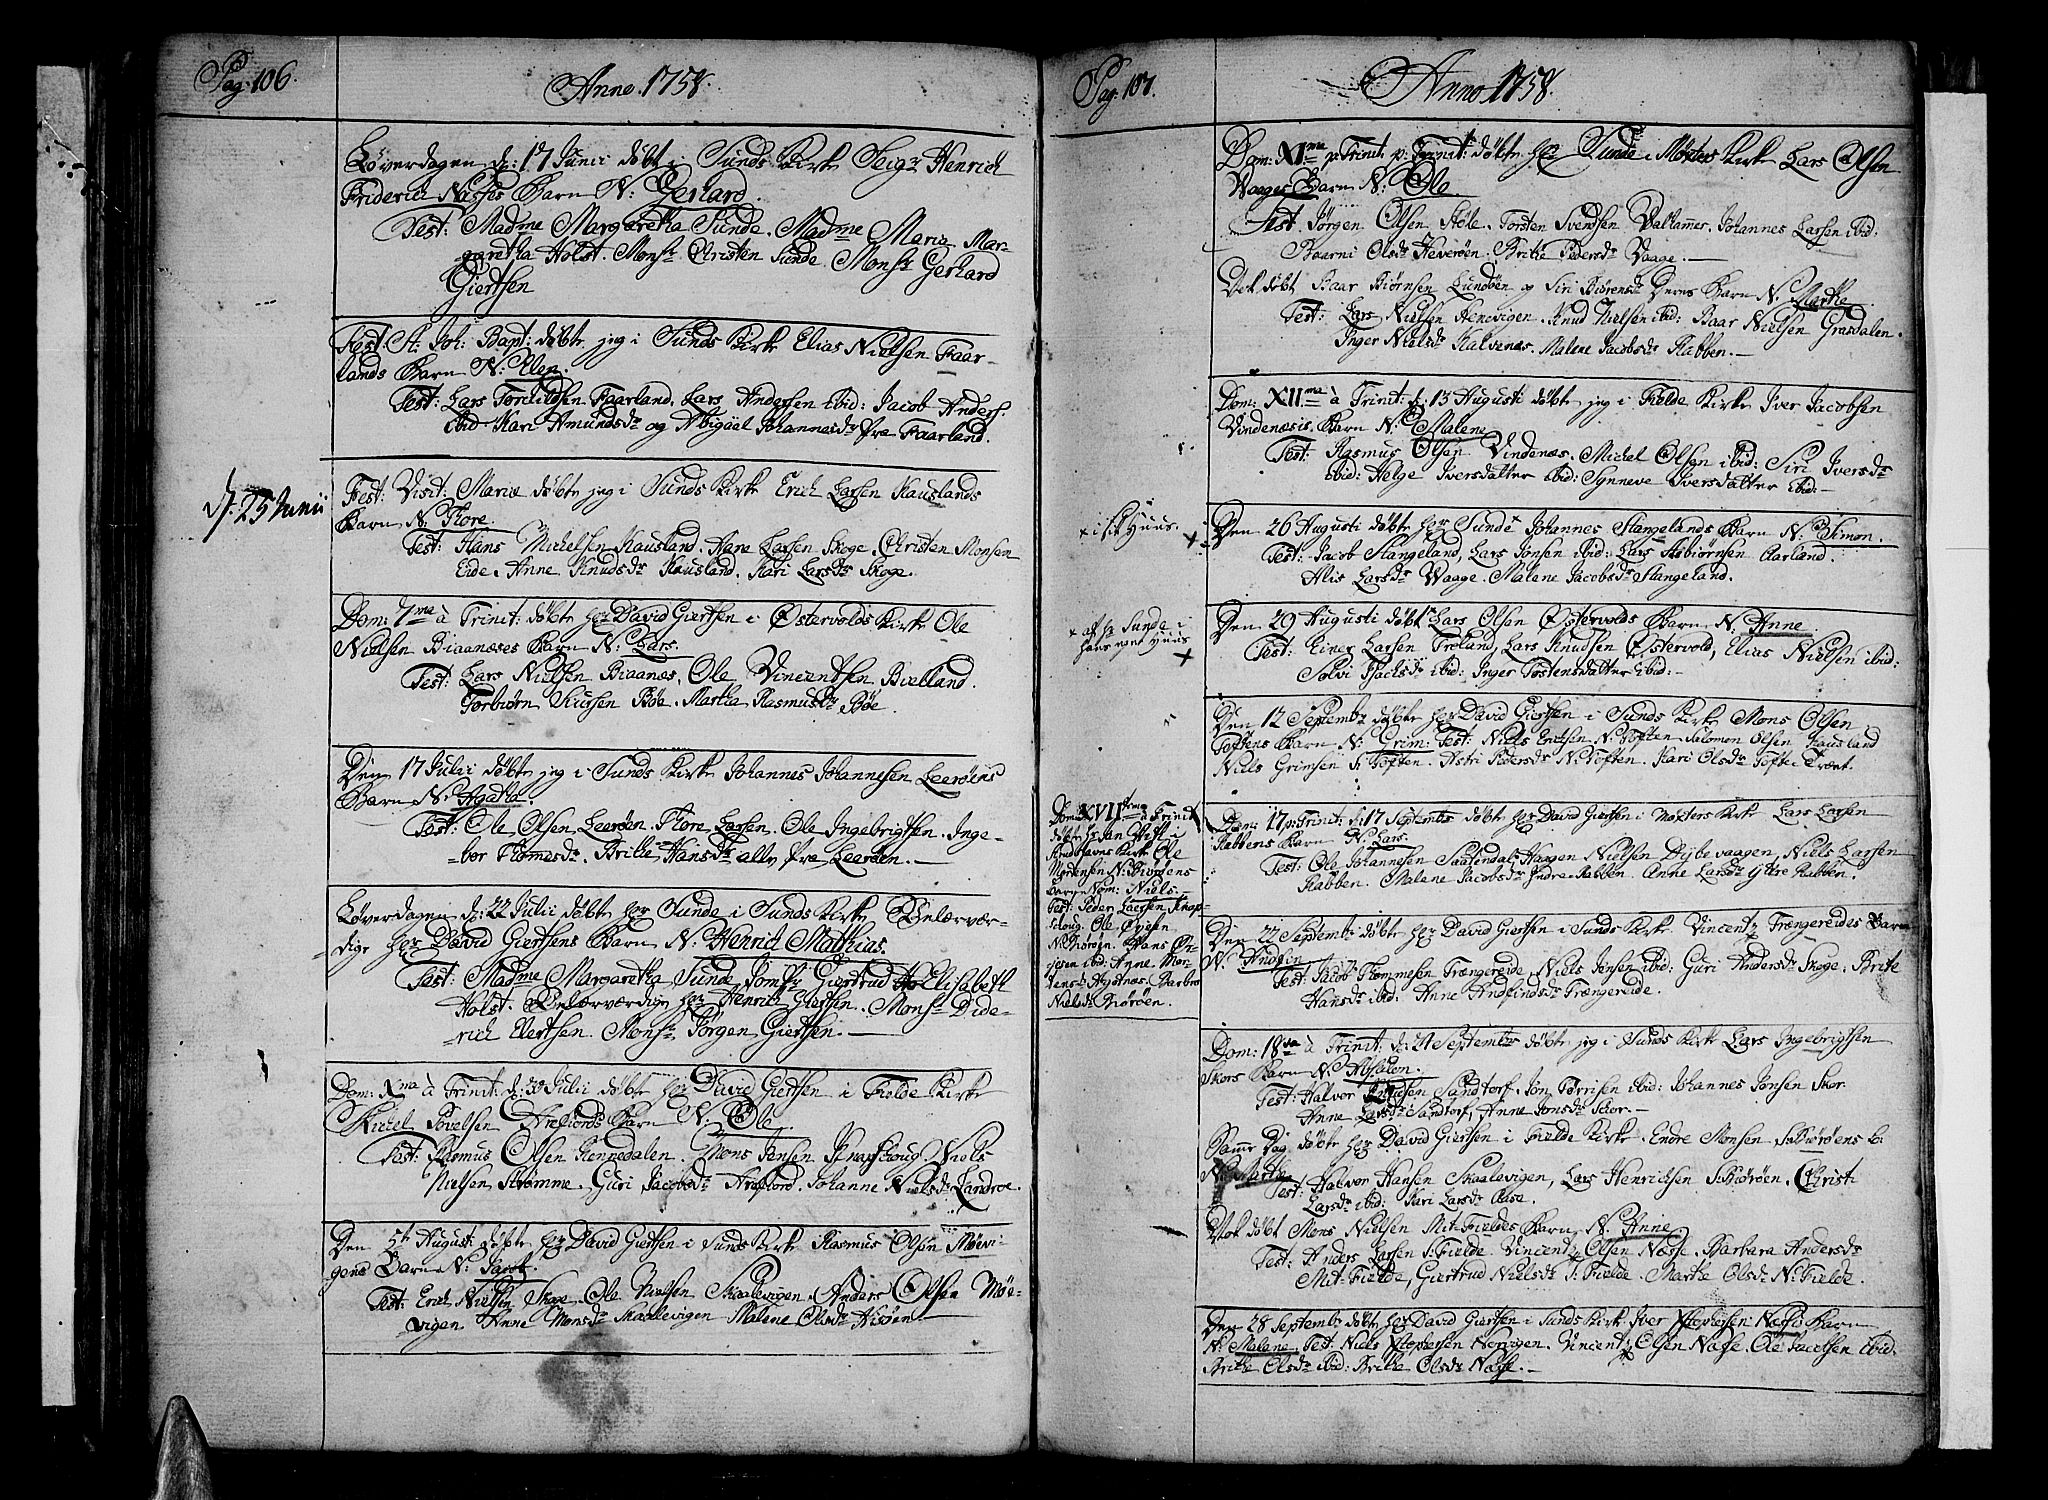 Pag: 106.
Anno 1758.
Løverdagen d: 17 Junii døbt i Sunds Kirke Seigr Henrich
Friderich Nasses Barn N: Gerhard.
Test: Madme Margaretha Sunde. Madme Maria Mar-
garetha Holst. Monsr Christen Sunde. Monsr Gerhard
Giertsen
Fest: St. Joh: Bapt: døbte jeg i Sunds Kirke Elias Nielsen Faar-
lands Barn N: Elen.
Test: Lars Torkildsen Faarland. Lars Andersen ibid: Jacob Anders:
ibid Kari Amundsdr og Abigael Johannesdr fra Faarland.
d. 25 Junii
Fest: Visit: Mariæ døbte jeg i Sunds Kirke Erich Larsen Kauslands
Barn N. Thore.
Test: Hans Michelsen Kausland. Aare Larsen Skoge. Christen Monsen
Eide. Anne Knudsdr Kausland. Kari Larsdr Skoge.
Dom: 7ma à Trinit: døbte hr David Giertsen i Østervolds Kirke Ole
Nielsen Biaanæses Barn N: Lars.
Test: Lars Nielsen Biaanæs, Ole Vincentsen Bielland.
Torbiørn Siursen Bøe. Martha Rasmusdr Bøe.
Den 17 Julii døbte jeg i Sunds Kirke Johannes Johannesen Leerøens
Barn N: Agatha.
Test: Ole Olsen Leerøen. Thore Larsen. Ole Ingebrigtsen. Inge-
bor Thomesdr. Britha Hansdr alle fra Leerøen.
Løverdagen d: 22 Julii døbte hr Sunde i Sunds Kirke Velærvær-
dige hr David Giertsens Barn N: Henrich Matthias
Test: Madme Margaretha Sunde Jomfr Giertrud Elisabeth
Holst. Velærværdige hr Henrich Giertsen. Monsr Dide-
rich Evertsen. Monsr Jørgen Giertsen.
Dom: Xma à Trinit: d: 30 Julii døbte hr David Giertsen i Fielde Kirke
Michel Povelsen Arefiords Barn N: Ole
Test: Rasmus Olsen Rennedalen. Mons Jensen Knapschoug. Niels
Nielsen Strømme. Guri Jacobsdr Arefiord. Johanne Nielsdr Landroe.
Den 5te August: døbte hr David Giertsen i Sunds Kirke Rasmus Olsen Møevi-
gens Barn N: Jacob.
Test: Erich Nielsen Skoge. Ole Nielsen Skaalevigen. Anders Olsen Møe-
vigen Anne Monsdr Skaalevigen Malene Olsdr Hisøen.
Pag: 107.
Anno 1758
Dom: XIma p. Trinit: p: Trinit: døbte hr Sunde i Møxters Kirke Lars Olsen
Vaages Barn N: Ole.
Test Jørgen Olsen Støle. Torsten Svendsen Valhammer. Johannes Larsen ibid:
Baarni Olsdr Heverøen. Britha Pedersdr Vaage.
Dek døbt Baar Biørnsen Lundøen og Siri Biørensdr Deres Barn N: Martha
Test: Lars Nielsen Henevigen. Knud Nielsen ibid: Baar Nielsen Grasdalen.
Inger Nielsdr Kalvenæs. Malene Jacobsdr Rabben.
Dom: XIIma à Trinit: d. 13 Augusti døbte jeg i Fielde Kirke Iver Jacobsen
Vindenæsis Barn N: Malene
Test: Rasmus Olsen Vindenæs. Michel Olsen ibid: Siri Iversdr
ibid: Helge Iversdatter ibid: Synneve Iversdatter ibid:
× i sit Huus.
Den 26 Augusti døbte hr Sunde × Johannes Stangelands Barn N: Simon.
Test: Jacob Stangeland, Lars Jonsen ibid: Lars Asbiørnsen Aarland.
Alis Larsdr Vaage. Malene Jacobsdr Stangeland.
× af hr Sunde i
hans eget Huus
Den 29 Augusti døbt × Lars Olsen Østervolds Barn N: Anne.
Test: Einer Larsen Troland, Lars Knudsen Østervold, Elias Nielsen ibid:
Sølvi Isachsdr ibid: Inger Tostensdatter ibid:
Den 12 Septembr døbte hr David Giertsen i Sunds Kirke Mons Olsen
Toftens Barn N: Grim: Test: Niels Erichsen N: Toften. Salomon Olsen Hausland
Niels Grimsen S: Toften. Astri Pedersdr N: Toften. Kari Olsdr Tofte Træet.
Dom: XVIIma à Trinit
døbte hr Jan Heft i
Sundshavns Kirke Ole
Mortensen N: Biorøens
Barn Nom: Niels.
Test: Peder Larsen Knap-
skoug. Ole Øvesen
N: Biorøen. Hans Ør-
jesen ibid: Anne Mor-
tensdr Agotnæs. Barbro
Nielsdr Biorøen.
Dom: 17 p. Trinit: d: 17 Septembr døbte hr David Giertsen i Møxters Kirke Lars Larsen
Rabbens Barn N: Lars.
Test: Ole Johannesen Saatendal. Haagen Nielsen Dybevaagen, Niels Larsen
Rabben. Malene Jacobsdr Indre-Rabben. Anne Larsdr Ytre Rabben.
Den 22 Septembr døbte hr David Giertsen i Sunds Kirke. Vincentz Trængereides Barn
N. Andfin
Test: Jacob Thommesen Trængereide, Niels Jensen ibid: Guri Andersdr Skoge. Brite
Hansdr ibid: Anne Andfindsdr Trængereide.
Dom: 18va à Trinit: d: 24 Septembr døbte jeg i Sunds Kirke Lars Ingebrigtsen
Skors Barn N. Absalon.
Test: Halvor Knudsen Sandtorf. Jon Torrisen ibid: Johannes Jonsen Skor.
Anne Larsdr Sandtorf, Anne Jonsdr Skor.
Samme Dag døbte hr David Giertsen i Fielde Kirke. Endre Monsen S: Biorøens B.
N: Martha
Test: Halvor Hansen Skaalevigen, Lars Henrichsen S: Biorøen. Christi
Larsdr ibid: Kari Larsdr Kasse.
Dok døbt Mons Nielsen Mit-Fieldes Barn N: Anne
Test: Anders Larsen S: Fielde. Vincentz Olsen Næsse. Barbara Andersdr
Mit-Fielde, Giertrud Nielsdr S: Fielde. Martha Olsdr N: Fielde.
Den 28 Septembr døbte hr David Giertsen i Sunds Kirk Iver Chophersen Næsse Barn
N: Malene. Test: Niels Chophersen Norvigen. Vincentz Olsen Næsse. Ole Jacobsen ibid.
Britha Olsdr ibid: Britha Olsdr Næsse.